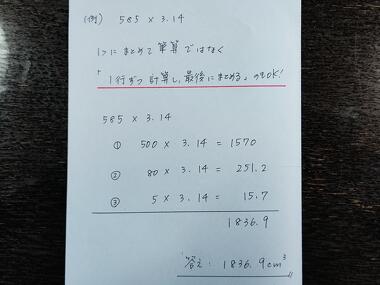 (例) 585 × 3.14
1つにまとめて筆算ではなく
「1行ずつ計算し、最後にまとめる」のもOK!
585 × 3.14
① 500 × 3.14 = 1570
② 80 × 3.14 = 251.2
③ 5 × 3.14 = 15.7
1836.9
答え: 1836.9cm³